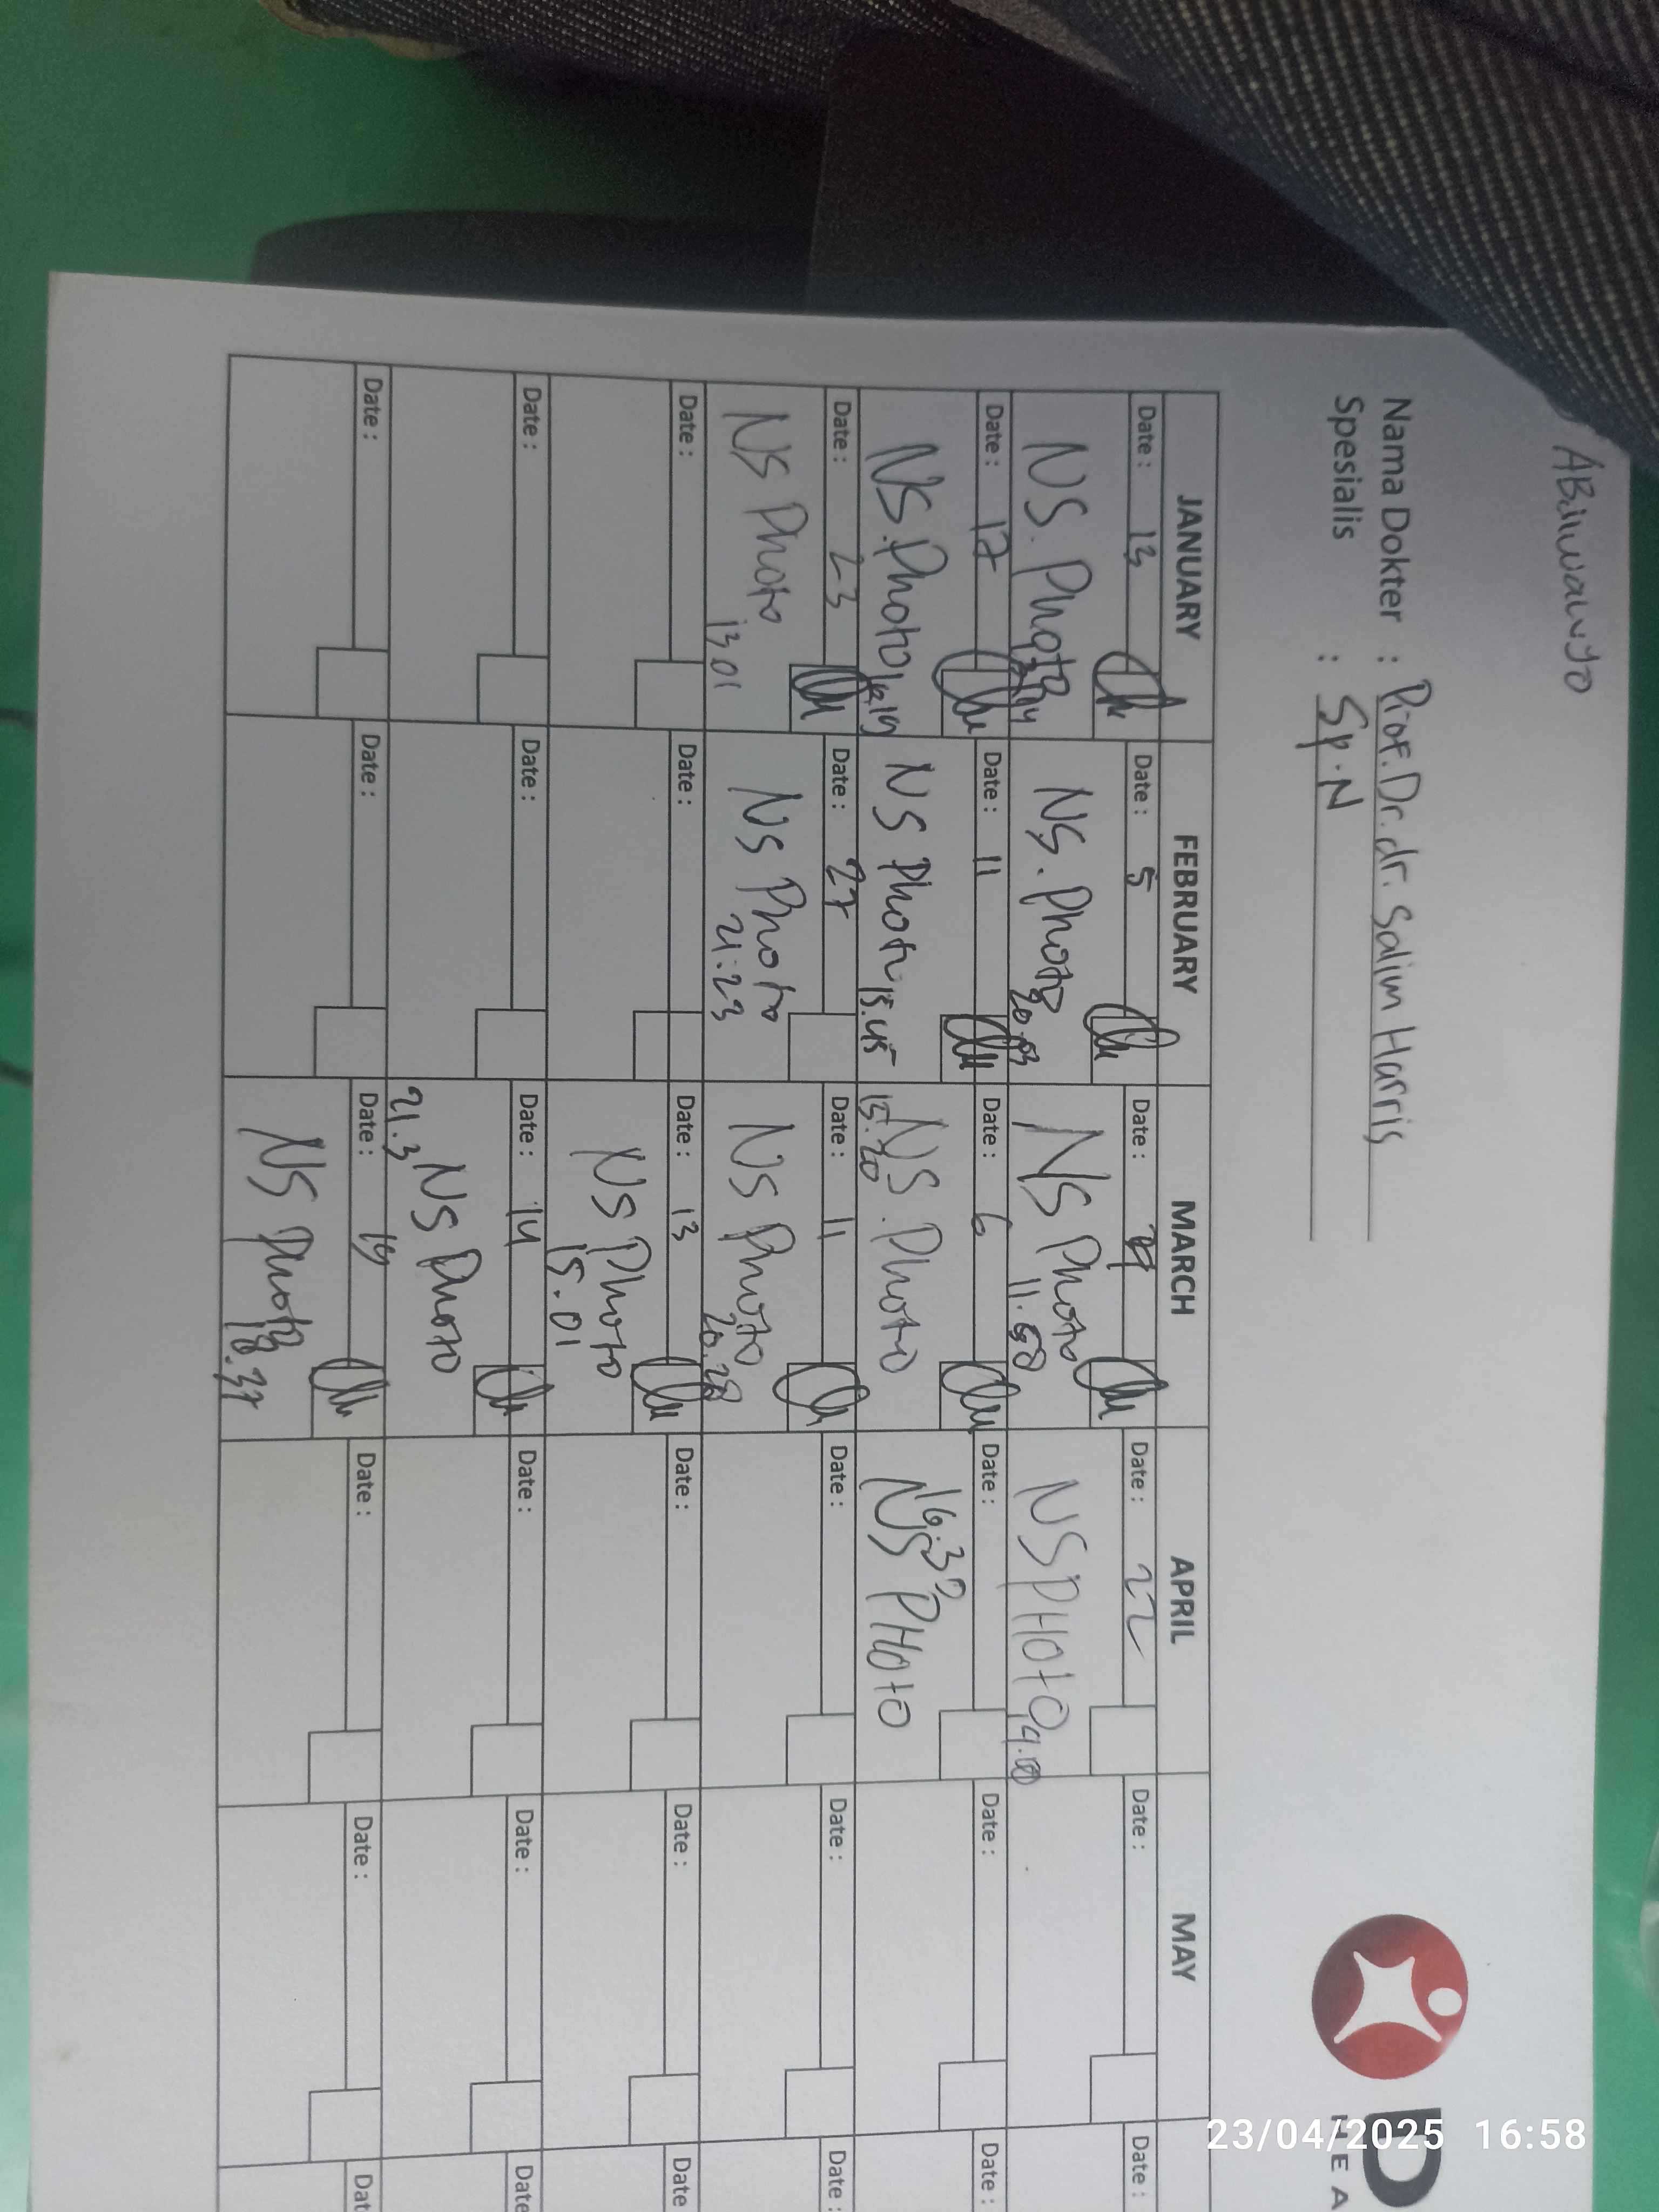 ABimanyo
Nama Dokter : Prof. Dr. dr. Salim Harris
Spesialis : Sp. N
JANUARY FEBRUARY MARCH APRIL MAY
Date : 13 Date : 5 Date : Date : 22 Date : Date :
NS. Photo NS. Photo 20.03 NS Photo 11.58 NS PHOTO 19.00
Date : 17 Date : 11 Date : 6 Date : Date : Date :
NS. Photo NS Photo 15.45 NS. Photo 15.20 NS PHOTO
Date : 23 Date : 27 Date : 11 Date : Date : Date :
NS Photo 13.01 NS Photo 21.23 NS Photo 20.28
Date : Date : Date : 13 Date : Date : Date
NS Photo 15.01
Date : Date : Date : 14 Date : Date : Date
21.3 NS Photo
Date : Date : Date : 19 Date : Date : Dat
NS Photo 18.37
23/04/2025 16:58